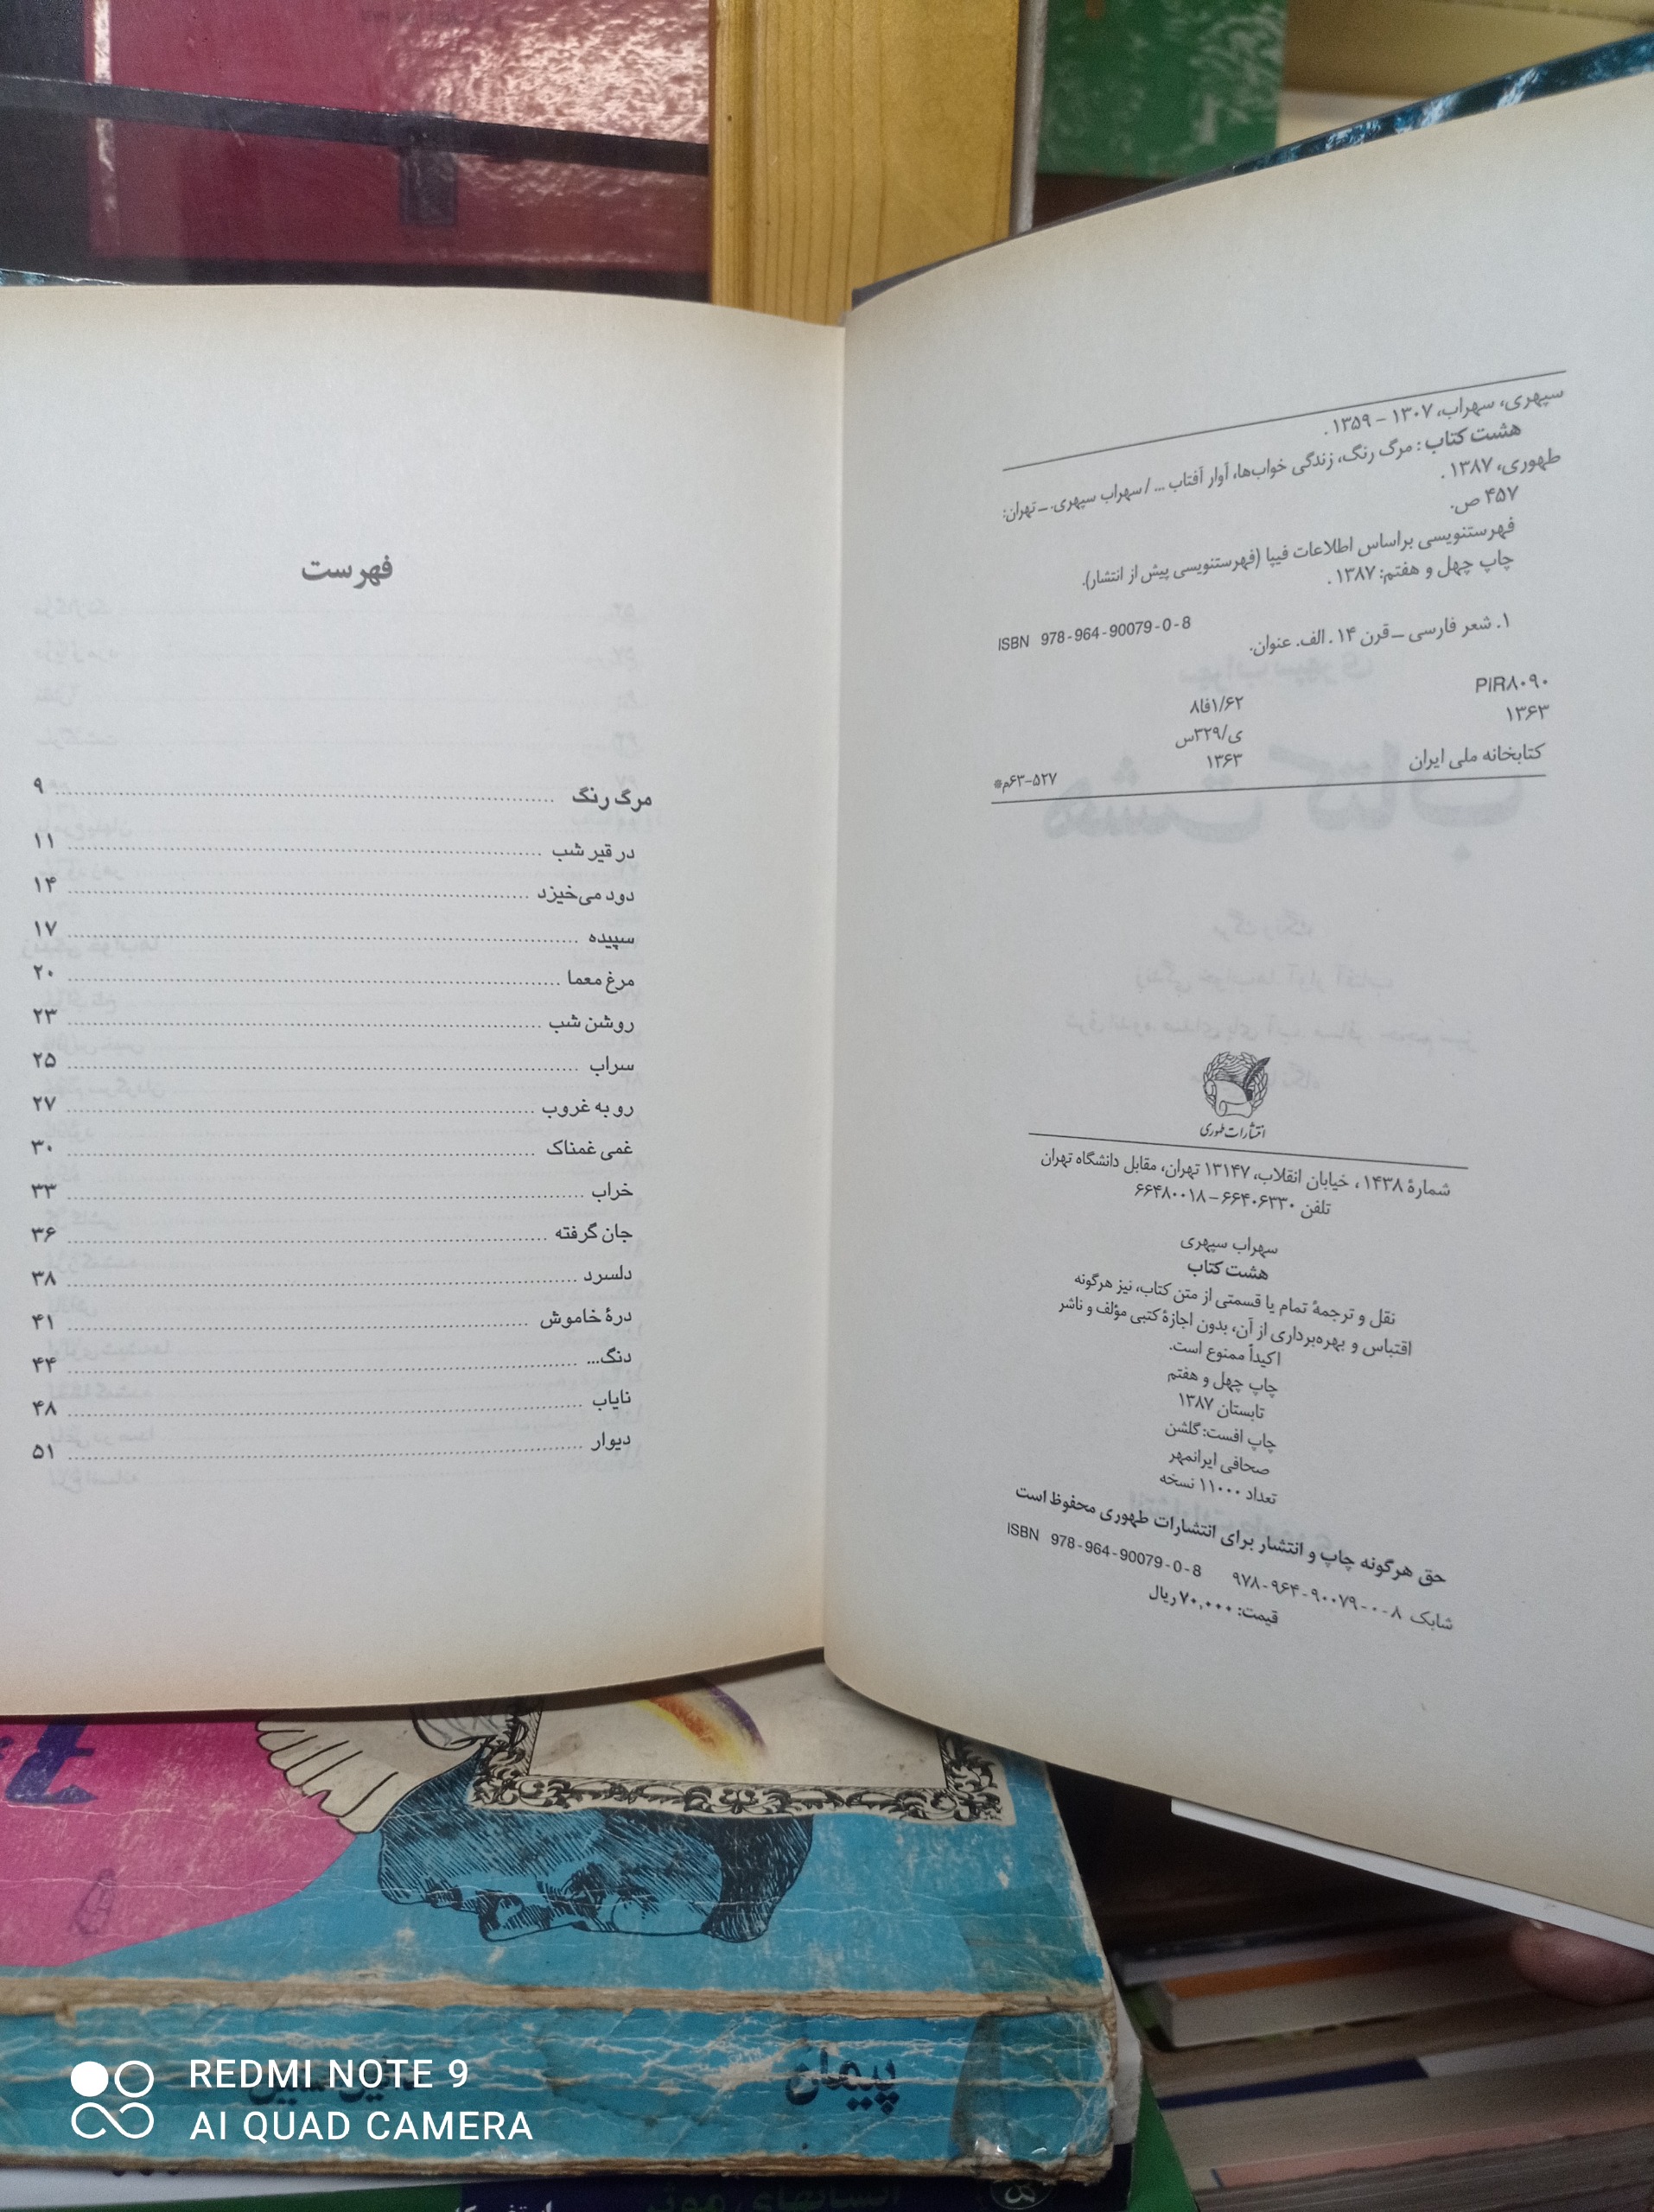 سپهری، سهراب، ۱۳۰۷ - ۱۳۵۹.
هشت کتاب: مرگ رنگ، زندگی خواب‌ها، آوار آفتاب ... / سهراب سپهری. ـ تهران:
طهوری، ۱۳۸۷.
۴۵۷ ص.
فهرستنویسی براساس اطلاعات فیپا (فهرستنویسی پیش از انتشار).
چاپ چهل و هفتم: ۱۳۸۷.
ISBN 978-964-90079-0-8
۱. شعر فارسی ـ قرن ۱۴. الف. عنوان.
PIR۸۰۹۰ ۸فا۱/۶۲
۱۳۶۳ ی/۳۲۹س
۱۳۶۳
کتابخانه ملی ایران ۵۲۷-۶۳م*
انتشارات طهوری
شمارهٔ ۱۴۳۸، خیابان انقلاب، ۱۳۱۴۷ تهران، مقابل دانشگاه تهران
تلفن ۶۶۴۰۶۳۳۰ - ۶۶۴۸۰۰۱۸
سهراب سپهری
هشت کتاب
نقل و ترجمهٔ تمام یا قسمتی از متن کتاب، نیز هرگونه
اقتباس و بهره‌برداری از آن، بدون اجازهٔ کتبی مؤلف و ناشر
اکیداً ممنوع است.
چاپ چهل و هفتم
تابستان ۱۳۸۷
چاپ افست: گلشن
صحافی ایرانمهر
تعداد ۱۱۰۰۰ نسخه
حق هرگونه چاپ و انتشار برای انتشارات طهوری محفوظ است
شابک ۸-۰-۹۰۰۷۹-۹۶۴-۹۷۸ ISBN 978-964-90079-0-8
قیمت: ۷۰,۰۰۰ ریال
فهرست
مرگ رنگ ۹
در قیر شب ۱۱
دود می‌خیزد ۱۴
سپیده ۱۷
مرغ معما ۲۰
روشن شب ۲۳
سراب ۲۵
رو به غروب ۲۷
غمی غمناک ۳۰
خراب ۳۳
جان گرفته ۳۶
دلسرد ۳۸
درهٔ خاموش ۴۱
دنگ... ۴۴
نایاب ۴۸
دیوار ۵۱
پیمان
REDMI NOTE 9
AI QUAD CAMERA